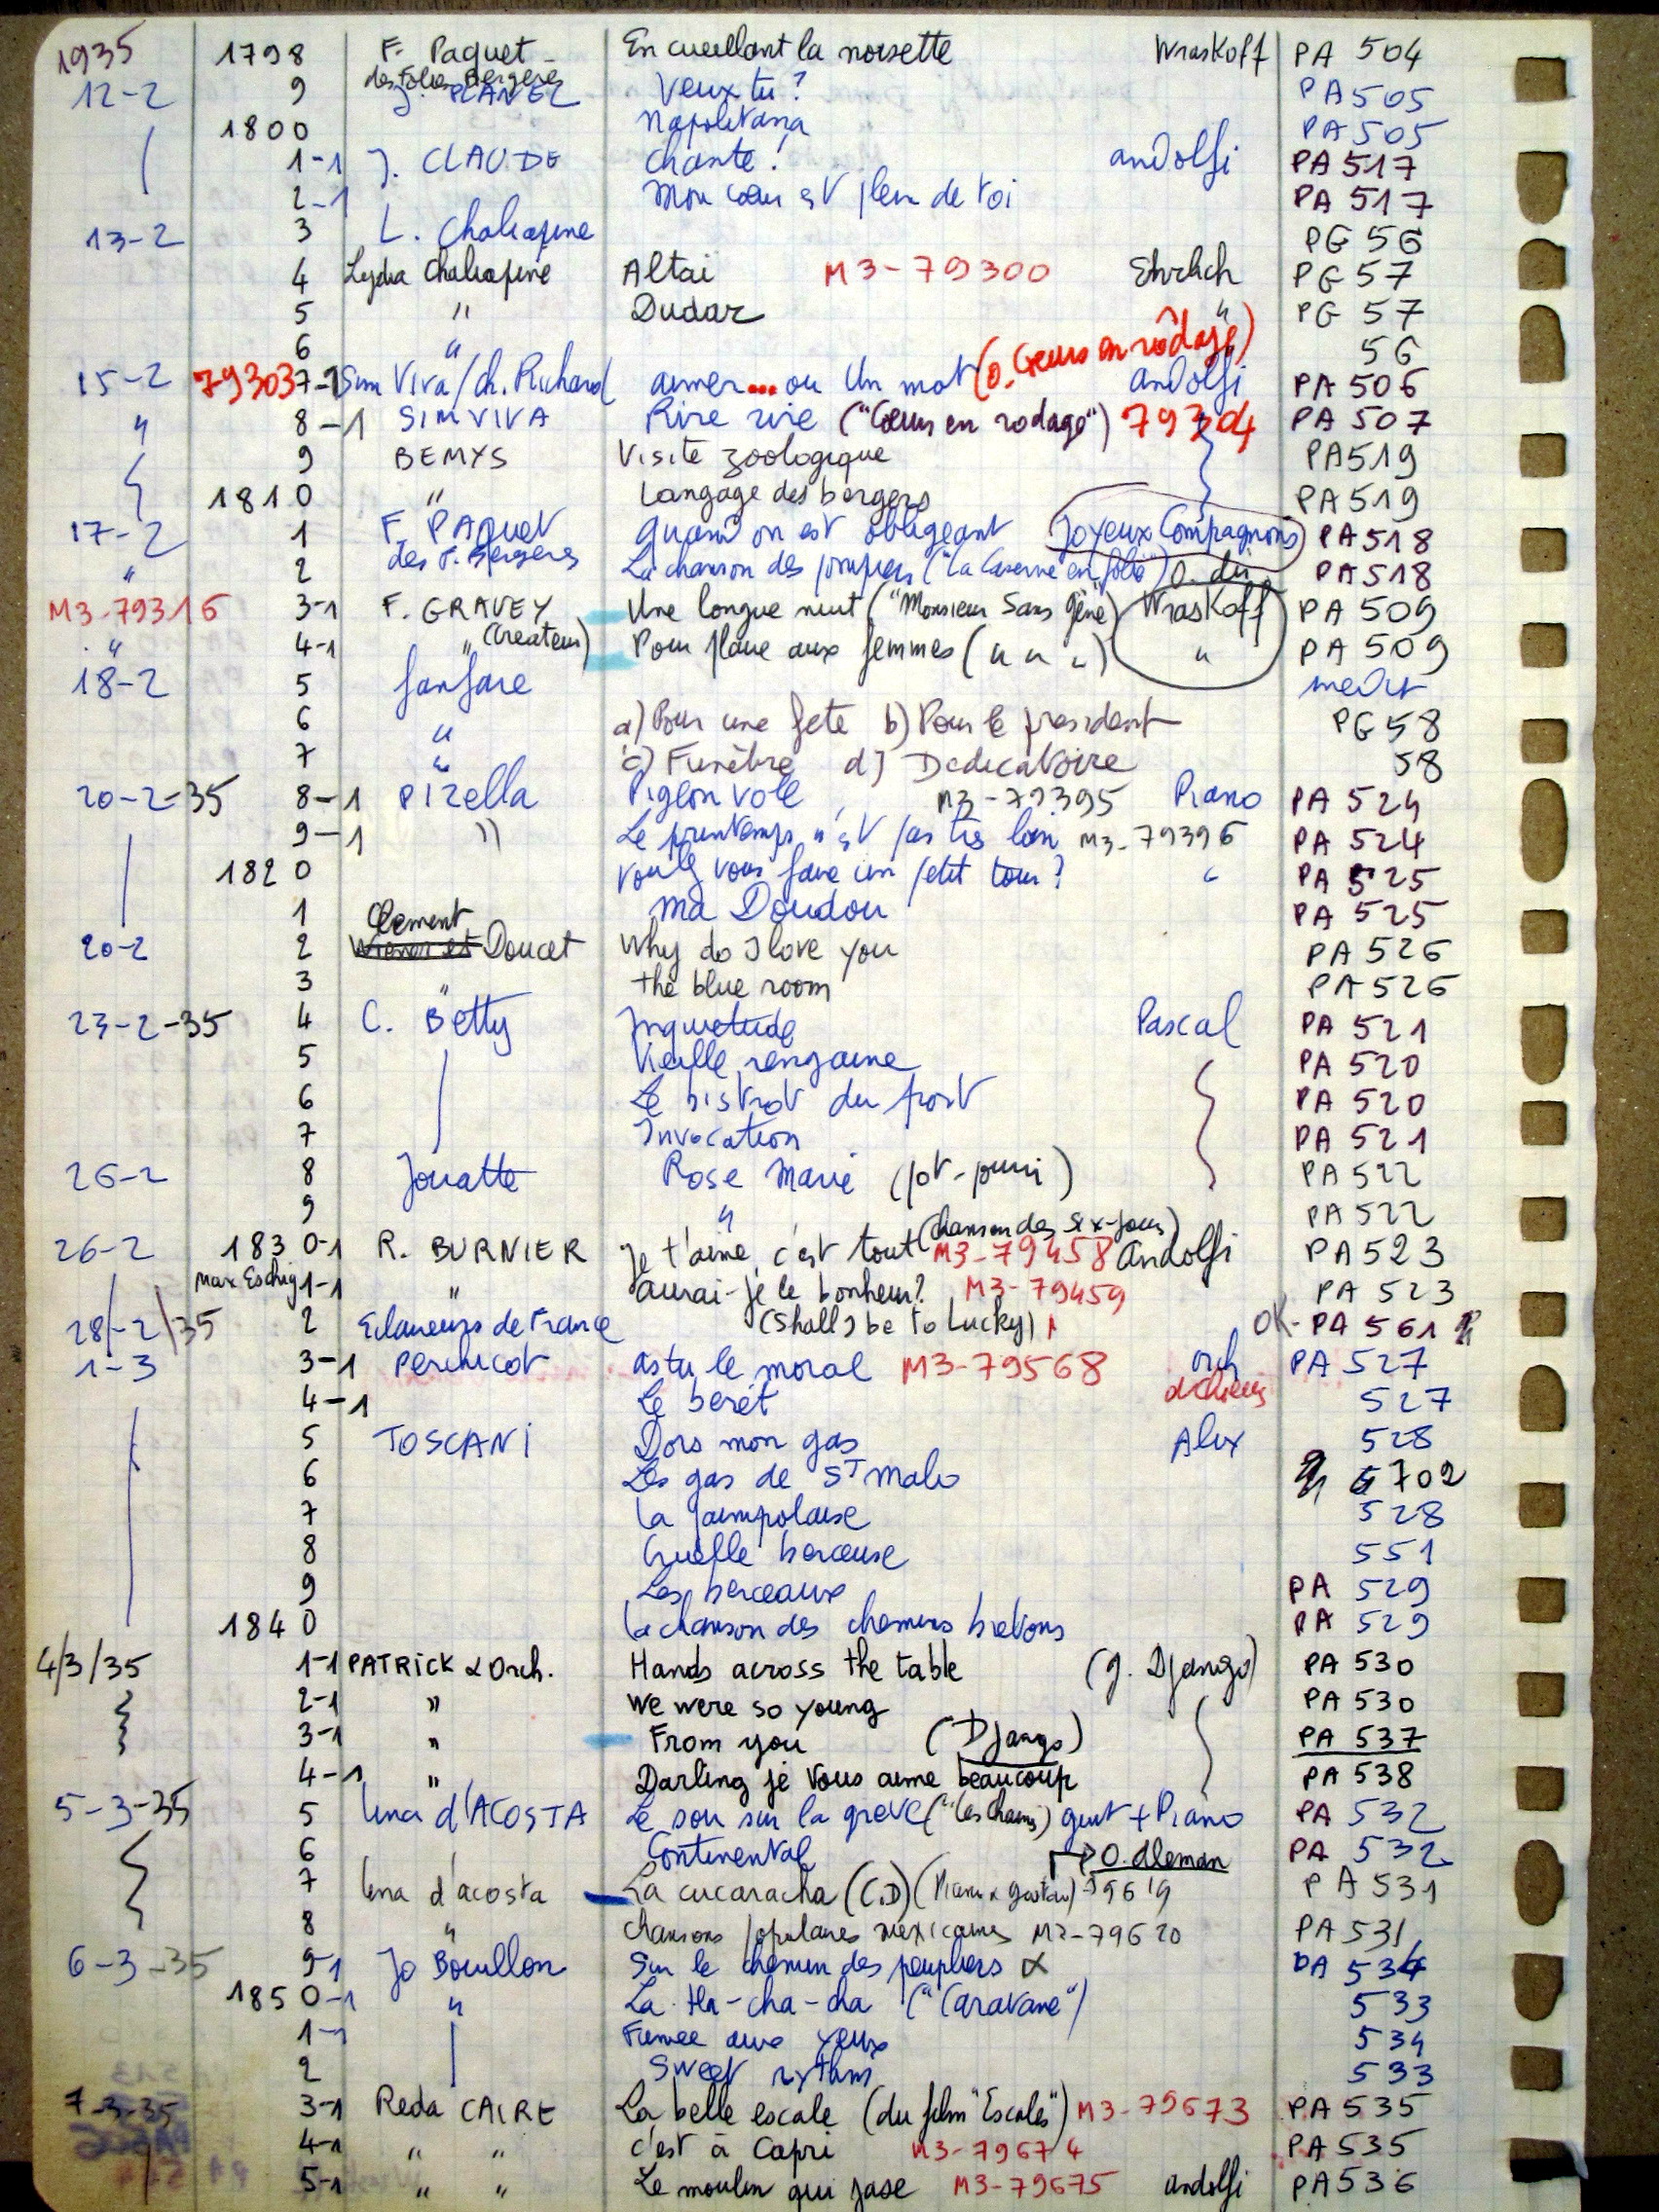 1935 1798 F. Paquet En cueillant la noisette Wraskoff PA 504
des Folies Bergeres
12-2 9 J. PLANEL Veux tu? PA 505
1800 Napolitana PA 505
1-1 J. CLAUDE chante! andolfi PA 517
2-1 Mon cœur est plein de toi PA 517
13-2 3 L. Chaliapine PG 56
4 Lydia Chaliapine Altai M3-79300 Ehrlich PG 57
5 " Dudar " PG 57
6 " 56
(o. Cœurs en rôdage)
15-2 79303 7-1 Sim Viva/ch. Richard aimer... ou Un mot andolfi PA 506
" 8-1 SIM VIVA Rire vie ("Cœurs en rodage") 79304 PA 507
9 BEMYS Visite zoologique PA 519
1810 " Langage des bergers PA 519
17-2 1 F. PAquet quand on est obligeant Joyeux Compagnons PA 518
des F. Bergeres
" 2 La chanson des pompiers ("La Caserne en folie") o. dir PA 518
M3-79316 3-1 F. GRAVEY Une longue nuit ("Monsieur Sans gêne) Wraskoff PA 509
" 4-1 " (Createur) Pour plaire aux femmes (" " ") " PA 509
18-2 5 fanfare inedit
6 " a) Pour une fete b) Pour le president PG 58
7 " c) Funèbre d) Dedicatoire 58
20-2-35 8-1 PIZella Pigeon vole M3-79395 Piano PA 524
9-1 " Le printemps n'est pas très loin M3-79396 PA 524
1820 voulez vous faire un petit tour? " PA 525
1 Ma Doudou PA 525
Clement
20-2 2 Wiener et Doucet Why do I love you PA 526
3 " the blue room PA 526
23-2-35 4 C. Betty Inquietude Pascal PA 521
5 Vieille rengaine PA 520
6 Le bistrot du port PA 520
7 Invocation PA 521
26-2 8 Jouatte Rose Marie (pot-pourri) PA 522
9 " PA 522
(chanson des six-jours)
26-2 1830-1 R. BURNIER Je t'aime, c'est tout M3-79458 Andolfi PA 523
Max Eschig 1-1 " aurai-je le bonheur? M3-79459 PA 523
28-2/35 2 Eclaireurs de France (Shall I be to Lucky) OK- PA 561
1-3 3-1 Perchicot as tu le moral M3-79568 orch PA 527
4-1 Le berêt 527
5 TOSCANI Dors mon gas Alix 528
6 Les gas de ST Malo 702
7 La paimpolaise 528
8 Cruelle berceuse 551
9 Les berceaux PA 529
1840 La chanson des chemins bretons PA 529
4/3/35 1-1 PATRICK & Orch. Hands across the table (g. Django) PA 530
2-1 " We were so young PA 530
3-1 " From you (Django) PA 537
4-1 " Darling je vous aime beaucoup PA 538
5-3-35 5 Lina d'ACOSTA Le soir sur la greve guit + Piano PA 532
6 Continental O. Aleman PA 532
7 Lina d'acosta La cucaracha (C.D) (Piano & guitare) 79619 PA 531
8 " chansons populaires mexicaines M3-79620 PA 531
6-3-35 9-1 Jo Bouillon Sur le chemin des peupliers PA 534
1850-1 " La Ha-cha-cha ("Caravane") 533
1-1 Fumee aux yeux 534
2 Sweet rythm 533
7-3-35 3-1 Reda CAIRE La belle escale (du film "Escale") M3-79673 PA 535
4-1 " " c'est à Capri M3-79674 PA 535
5-1 " " Le moulin qui jase M3-79675 andolfi PA 536